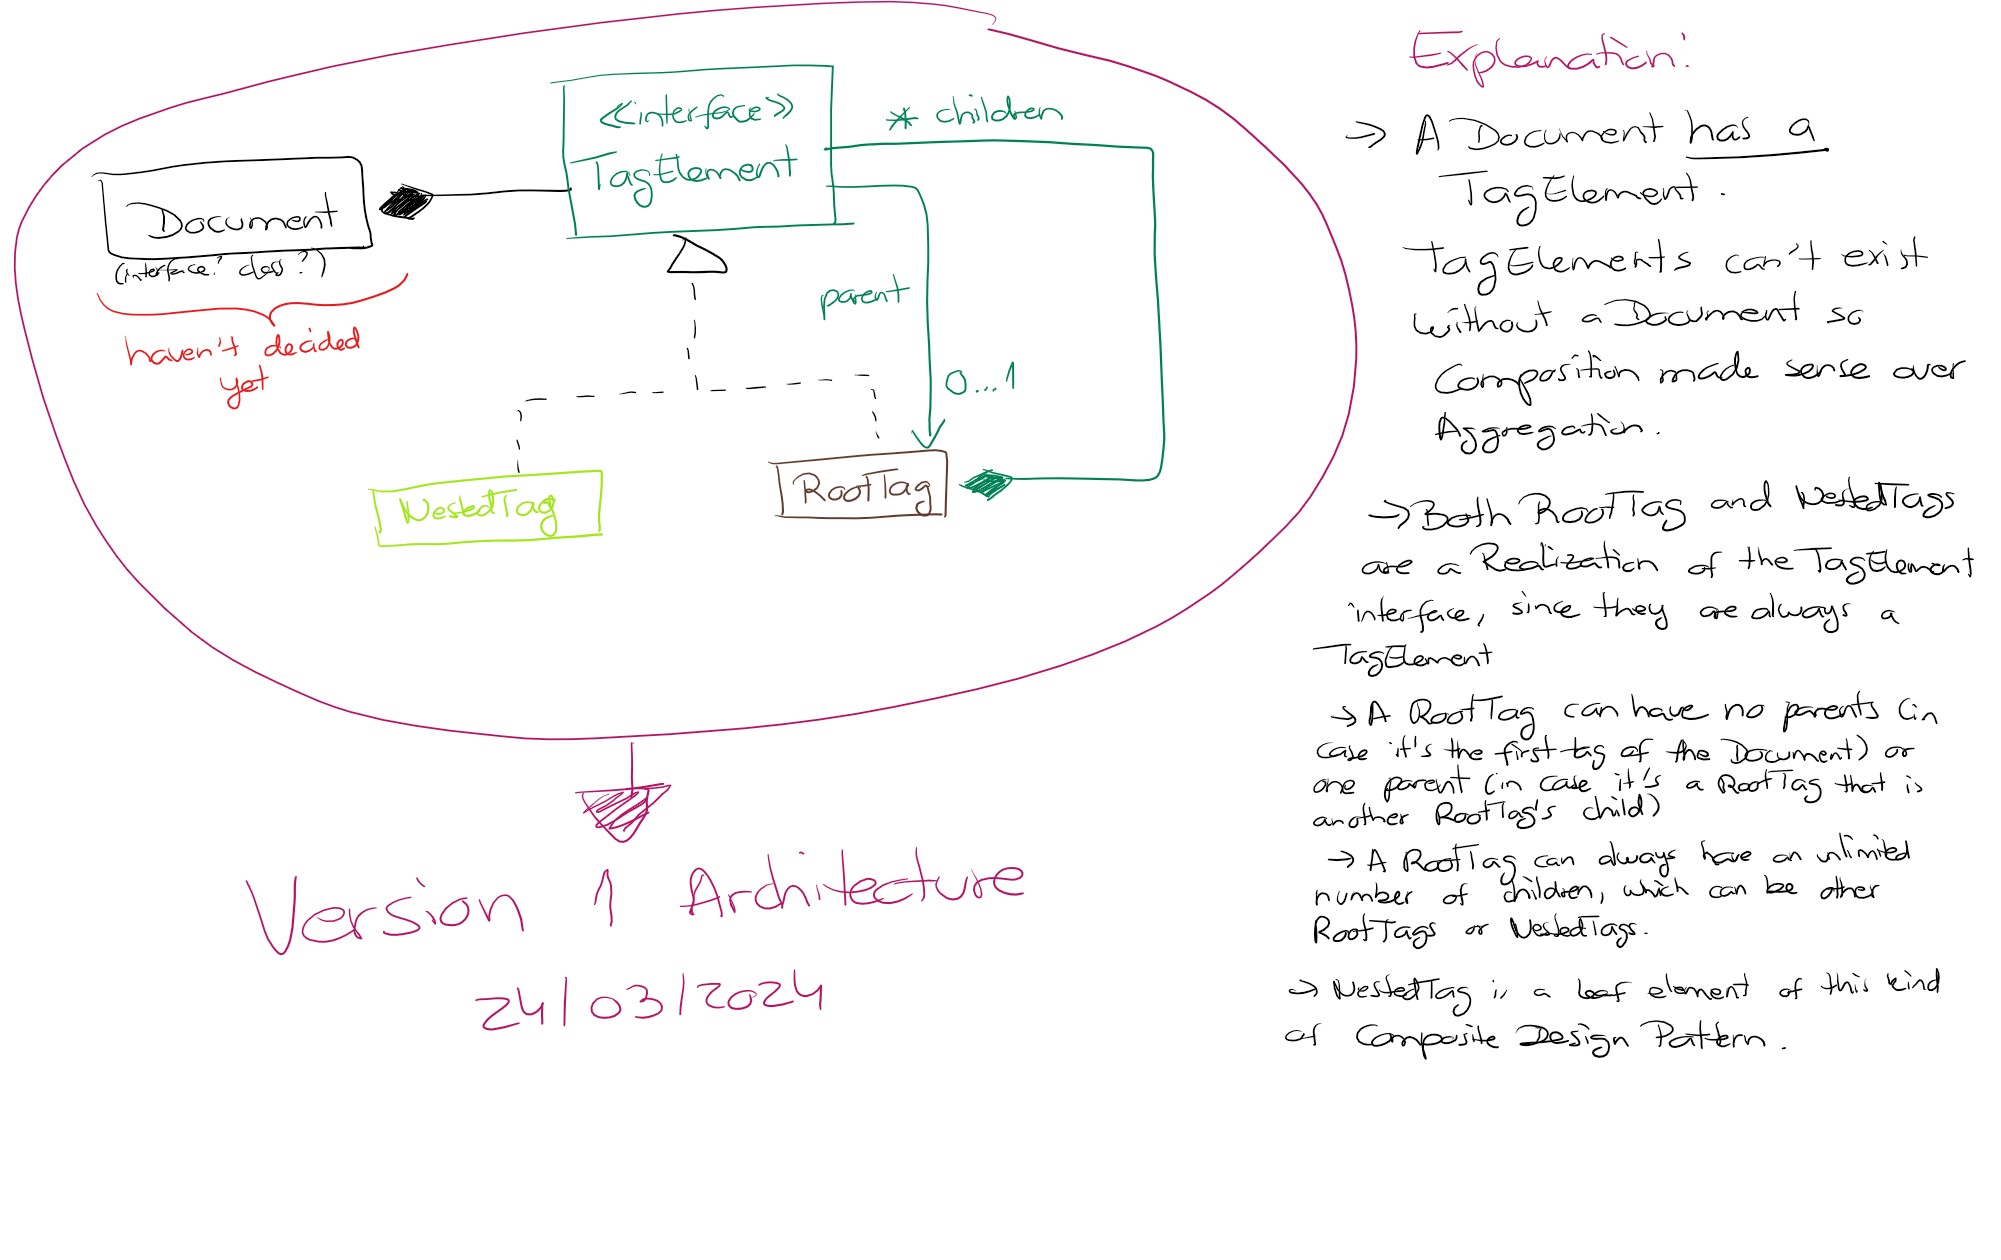 <<interface>>
TagElement
* children
Document
(interface? class?)
haven't decided
yet
parent
0...1
NestedTag
RootTag
Version 1 Architecture
24/03/2024
Explanation:
→ A Document has a
TagElement.
TagElements can't exist
without a Document so
Composition made sense over
Aggregation.
→ Both RootTag and NestedTags
are a Realization of the TagElement
interface, since they are always a
TagElement
→ A RootTag can have no parents (in
case it's the first tag of the Document) or
one parent (in case it's a RootTag that is
another RootTag's child)
→ A RootTag can always have an unlimited
number of children, which can be other
RootTags or NestedTags.
→ NestedTag is a leaf element of this kind
of Composite Design Pattern.